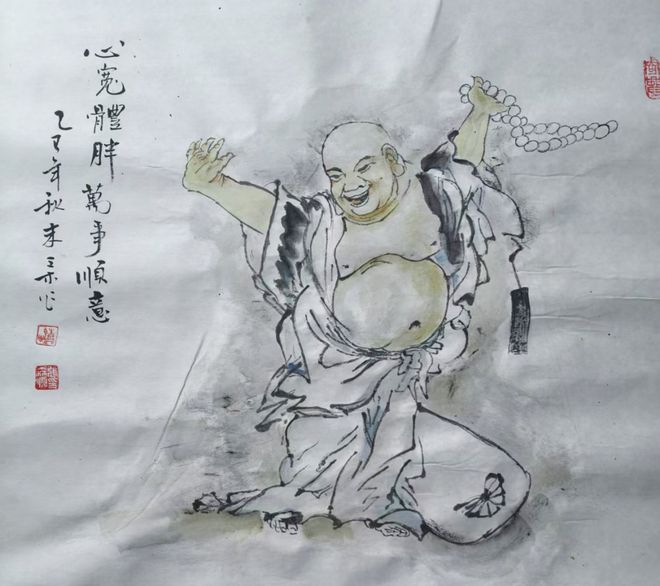 心寬體胖 萬事順意
乙年秋作